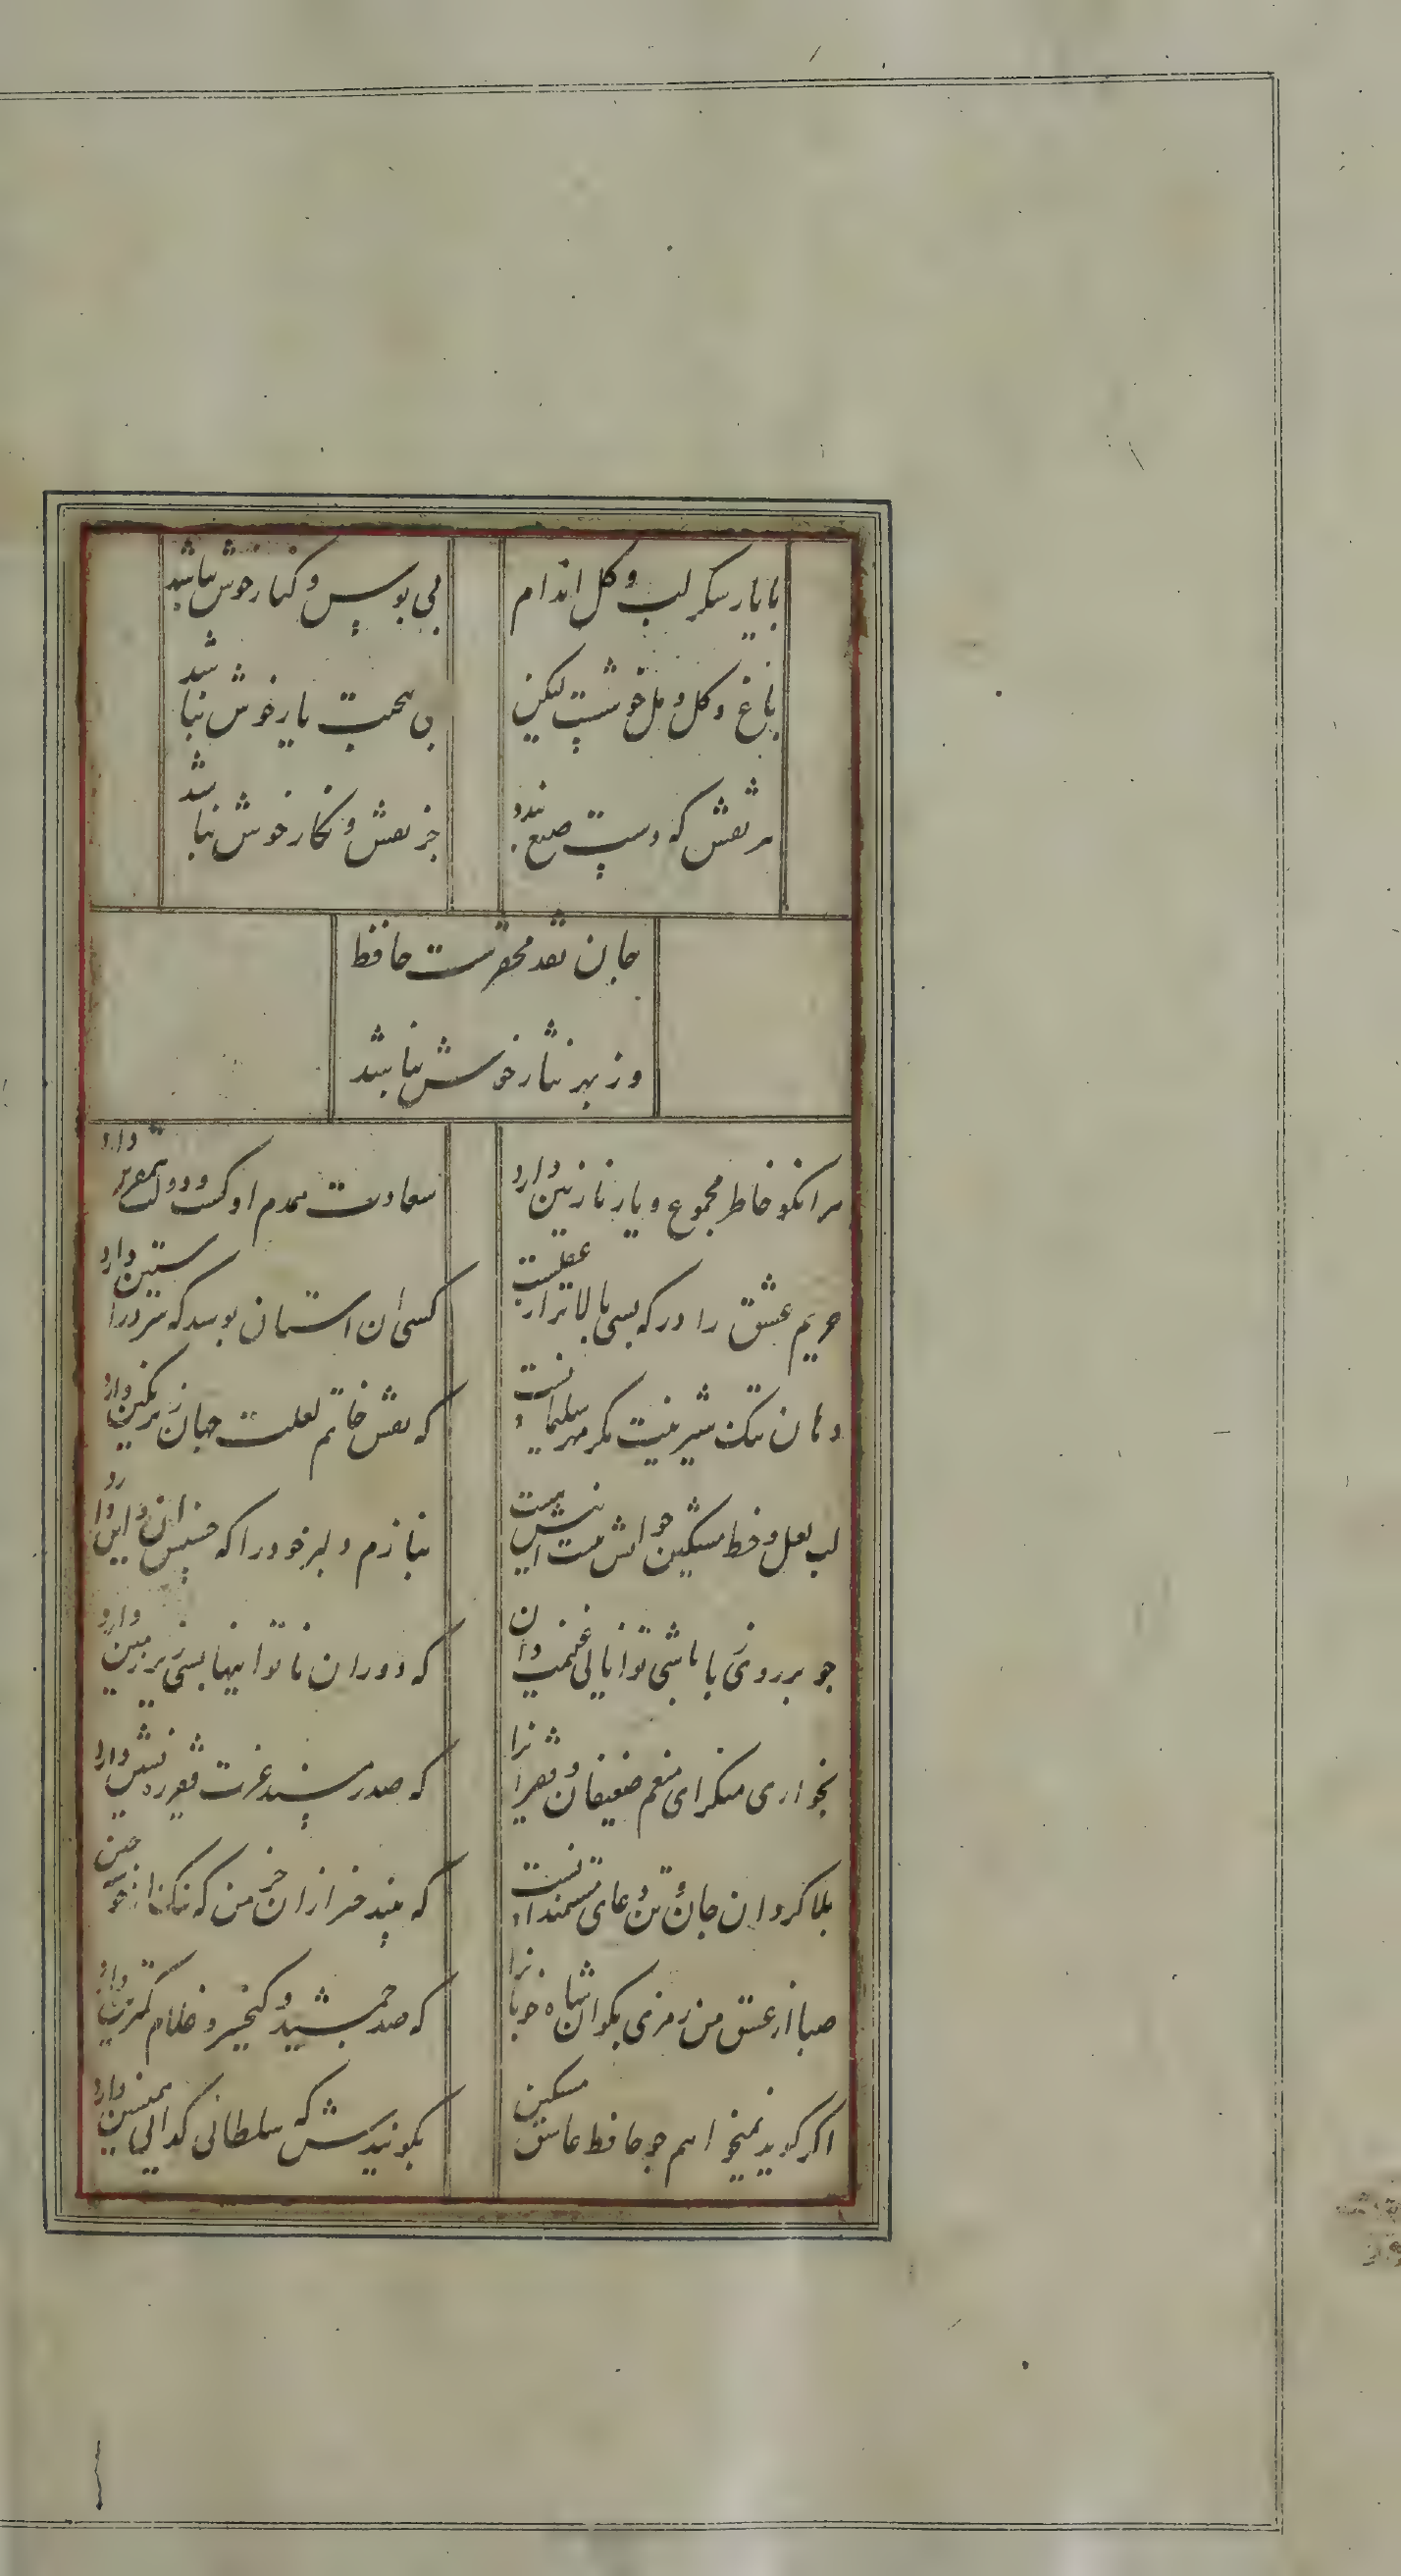 با یار شکر لب و کل اندام
بی بوس و کنار خوش نباشد
باغ و کل و مل خوشست لیکن
بی صحبت یار خوش نباشد
هر نقش که دست صنع بندد
جز نقش و نکار خوش نباشد
جان نقد محقرست حافظ
وز بهر نثار خوش نباشد
هر انکو خاطر مجموع و یار نازنین دارد
سعادت همدم او کشت و دولت همقرین دارد
حریم عشق را درکه بسی بالاتر از عقلست
کسی ان استان بوسد که سر در استین دارد
دهان تنک شیرینت مکر مهر سلیمانست
که نقش خاتم لعلت جهان زیر نکین دارد
لب لعل و خط مشکین جو انش هست اینش هست
بنازم دلبر خود را که حسنش ان و این دارد
جو بر روی زمین باشی توانایی غنیمت دان
که دوران ناتوانیها بسی زیر زمین دارد
بخواری منکر ای منعم ضعیفان و فقیرانرا
که صدر مسند عزت فقیر ره نشین دارد
بلا کردان جان و تن دعای مستمندانست
که بیند خیر از ان خرمن که ننک از خوشه چین
صبا از عشق من رمزی بکو ان شاه خوبانرا
که صد جمشید و کیخسرو غلام کمترین دارد
اکر کوید نمیخواهم جو حافظ عاشق مسکین
بکوئیدش که سلطانی کدائی همنشین دارد